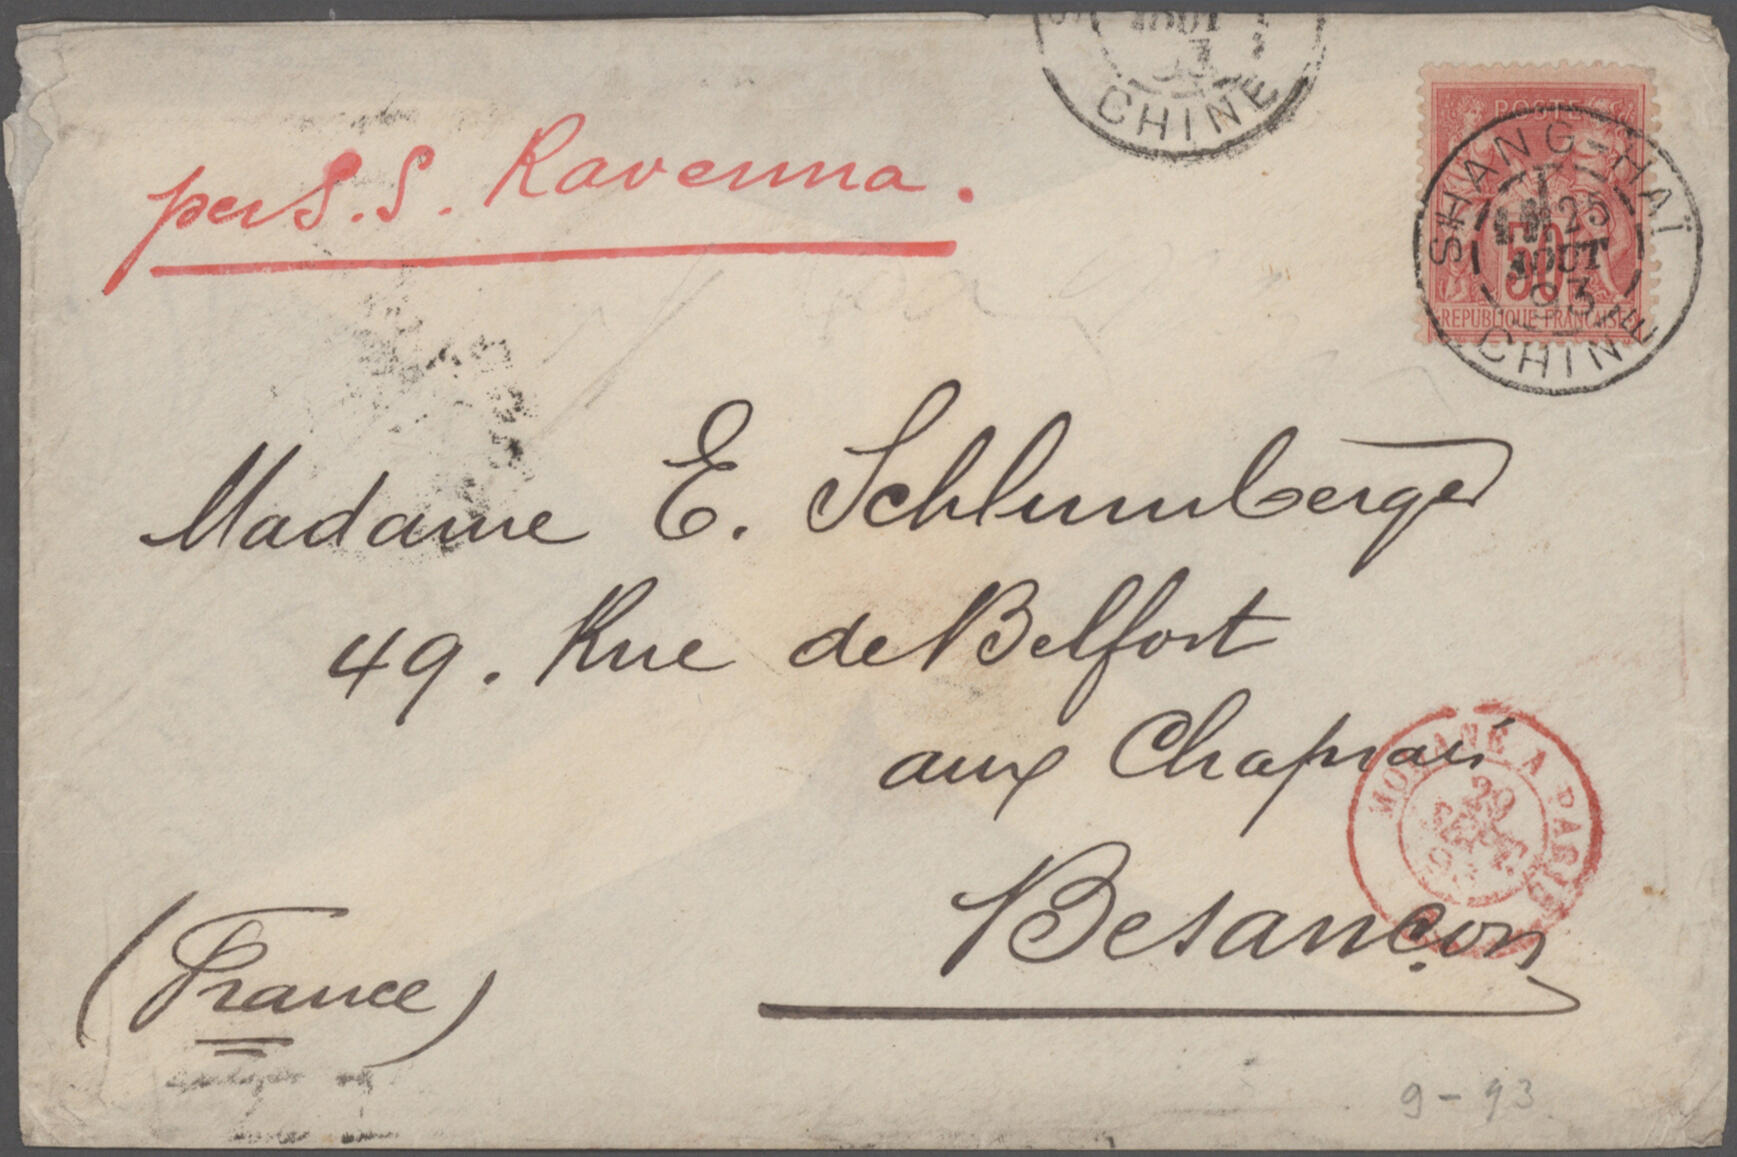 AOUT
93
CHINE
per S.S. Ravenna.
POSTES
SHANG-HAÏ
25
AOUT
93
CHINE
50
REPUBLIQUE FRANÇAISE
Madame E. Schlumberger
49. Rue de Belfort
aux Chaprais
MODANE A PARIS
29
SEPT
93
Besançon
(France)
9-93